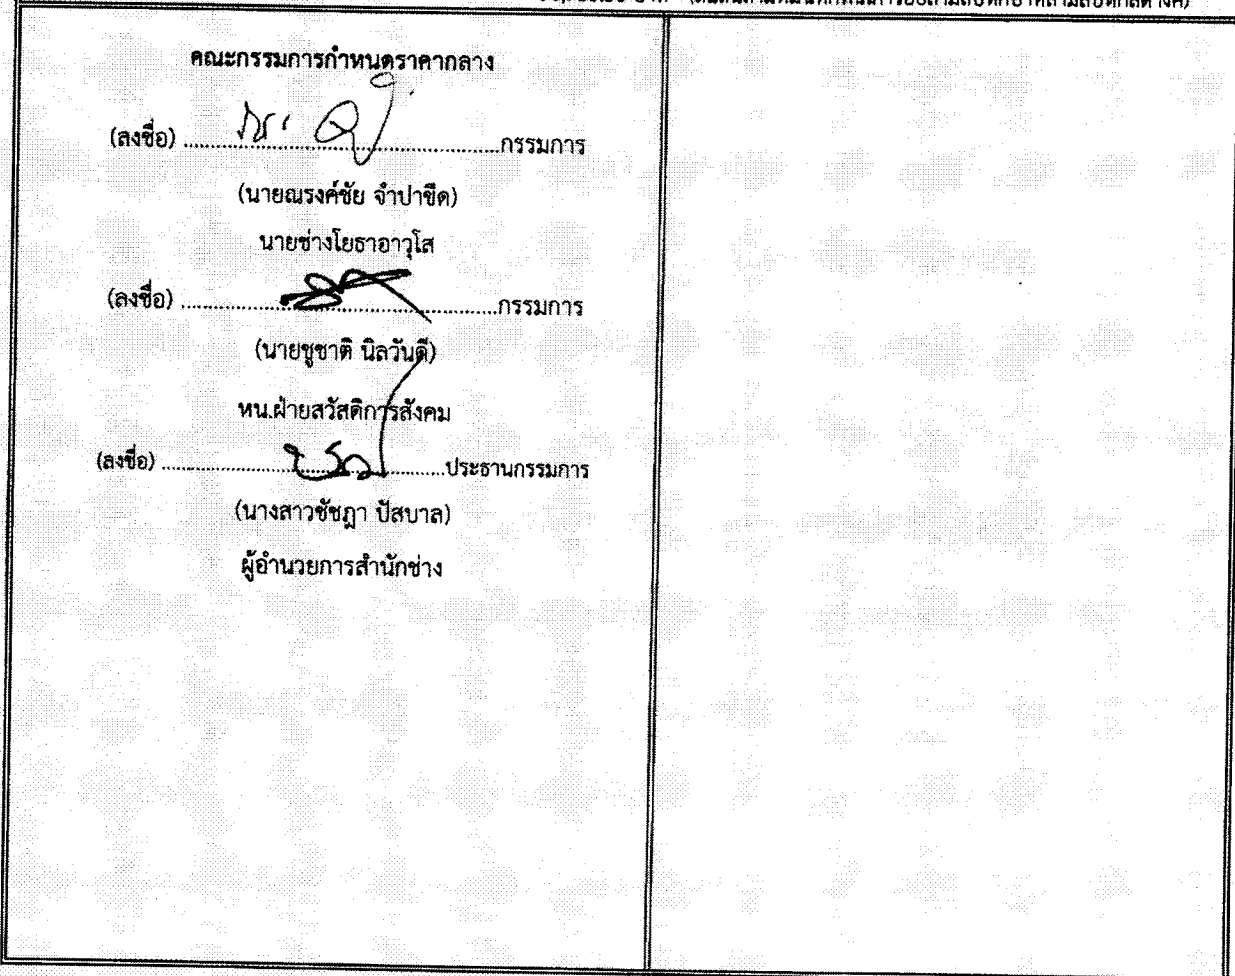 คณะกรรมการกำหนดราคากลาง
(ลงชื่อ) ................................................กรรมการ
(นายณรงค์ชัย จำปาขีด)
นายช่างโยธาอาวุโส
(ลงชื่อ) ................................................กรรมการ
(นายชูชาติ นิลวันดี)
หน.ฝ่ายสวัสดิการสังคม
(ลงชื่อ) ................................................ประธานกรรมการ
(นางสาวชัชฎา ปัสบาล)
ผู้อำนวยการสำนักช่าง